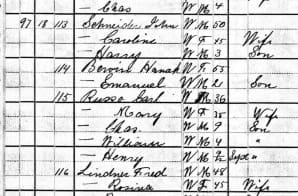 — Chas W M 4
97 18 113 Schneider John W M 50
— Caroline W F 45 Wife
— Harry W M 3 Son
114 Hanah W F 55
— Emanuel W M 21 Son
115 Russo Carl W M 36
— Mary W F 35 Wife
— Chas. W M 9 Son
— William W M 4 "
— Henry W M 9/12 Sept "
116 Lindner Fred W M 48
— Rosina W F 45 Wife